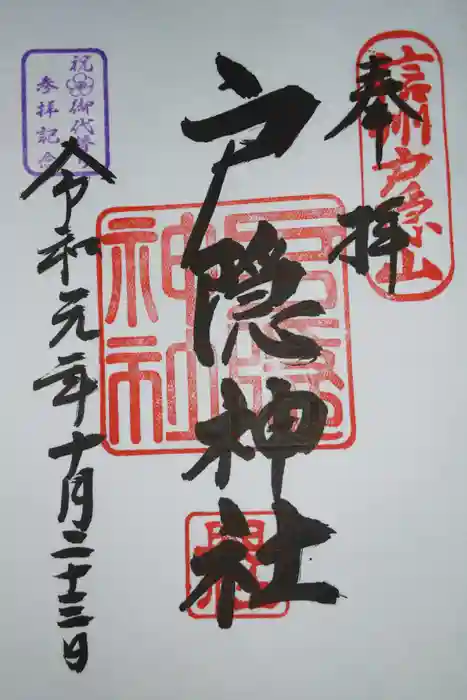 奉拝
信州戸隠山
戸隠神社
戸隠神社
令和元年十月二十三日
祝御代替り
参拝記念